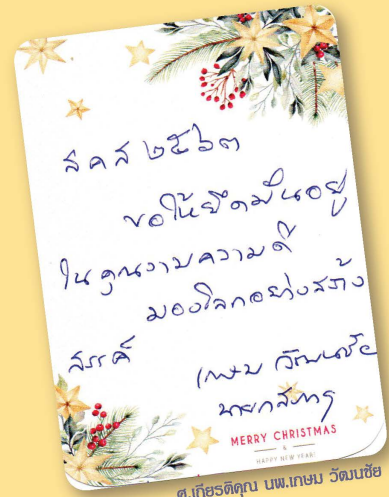 ส ค ส ๒๕๖๓
ขอให้ยึดมั่นอยู่
ในคุณงามความดี
มองโลกอย่างสร้าง
สรรค์
เกษม วัฒนชัย
นายกสภาฯ
MERRY CHRISTMAS
&
HAPPY NEW YEAR!
ศ.เกียรติคุณ นพ.เกษม วัฒนชัย